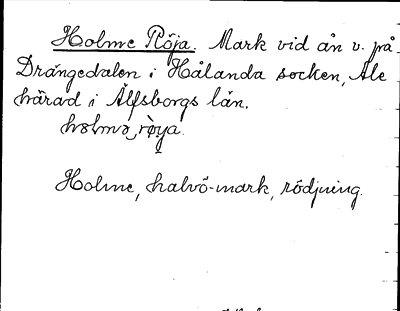 Holme Röja. Mark vid ån v. på
Drängedalen i Hålanda socken, Ale
härad i Älfsborgs län.
Holme, halvö-mark, rödjning.